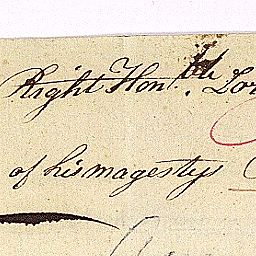 Right Hon.ble Lor
of his magestys